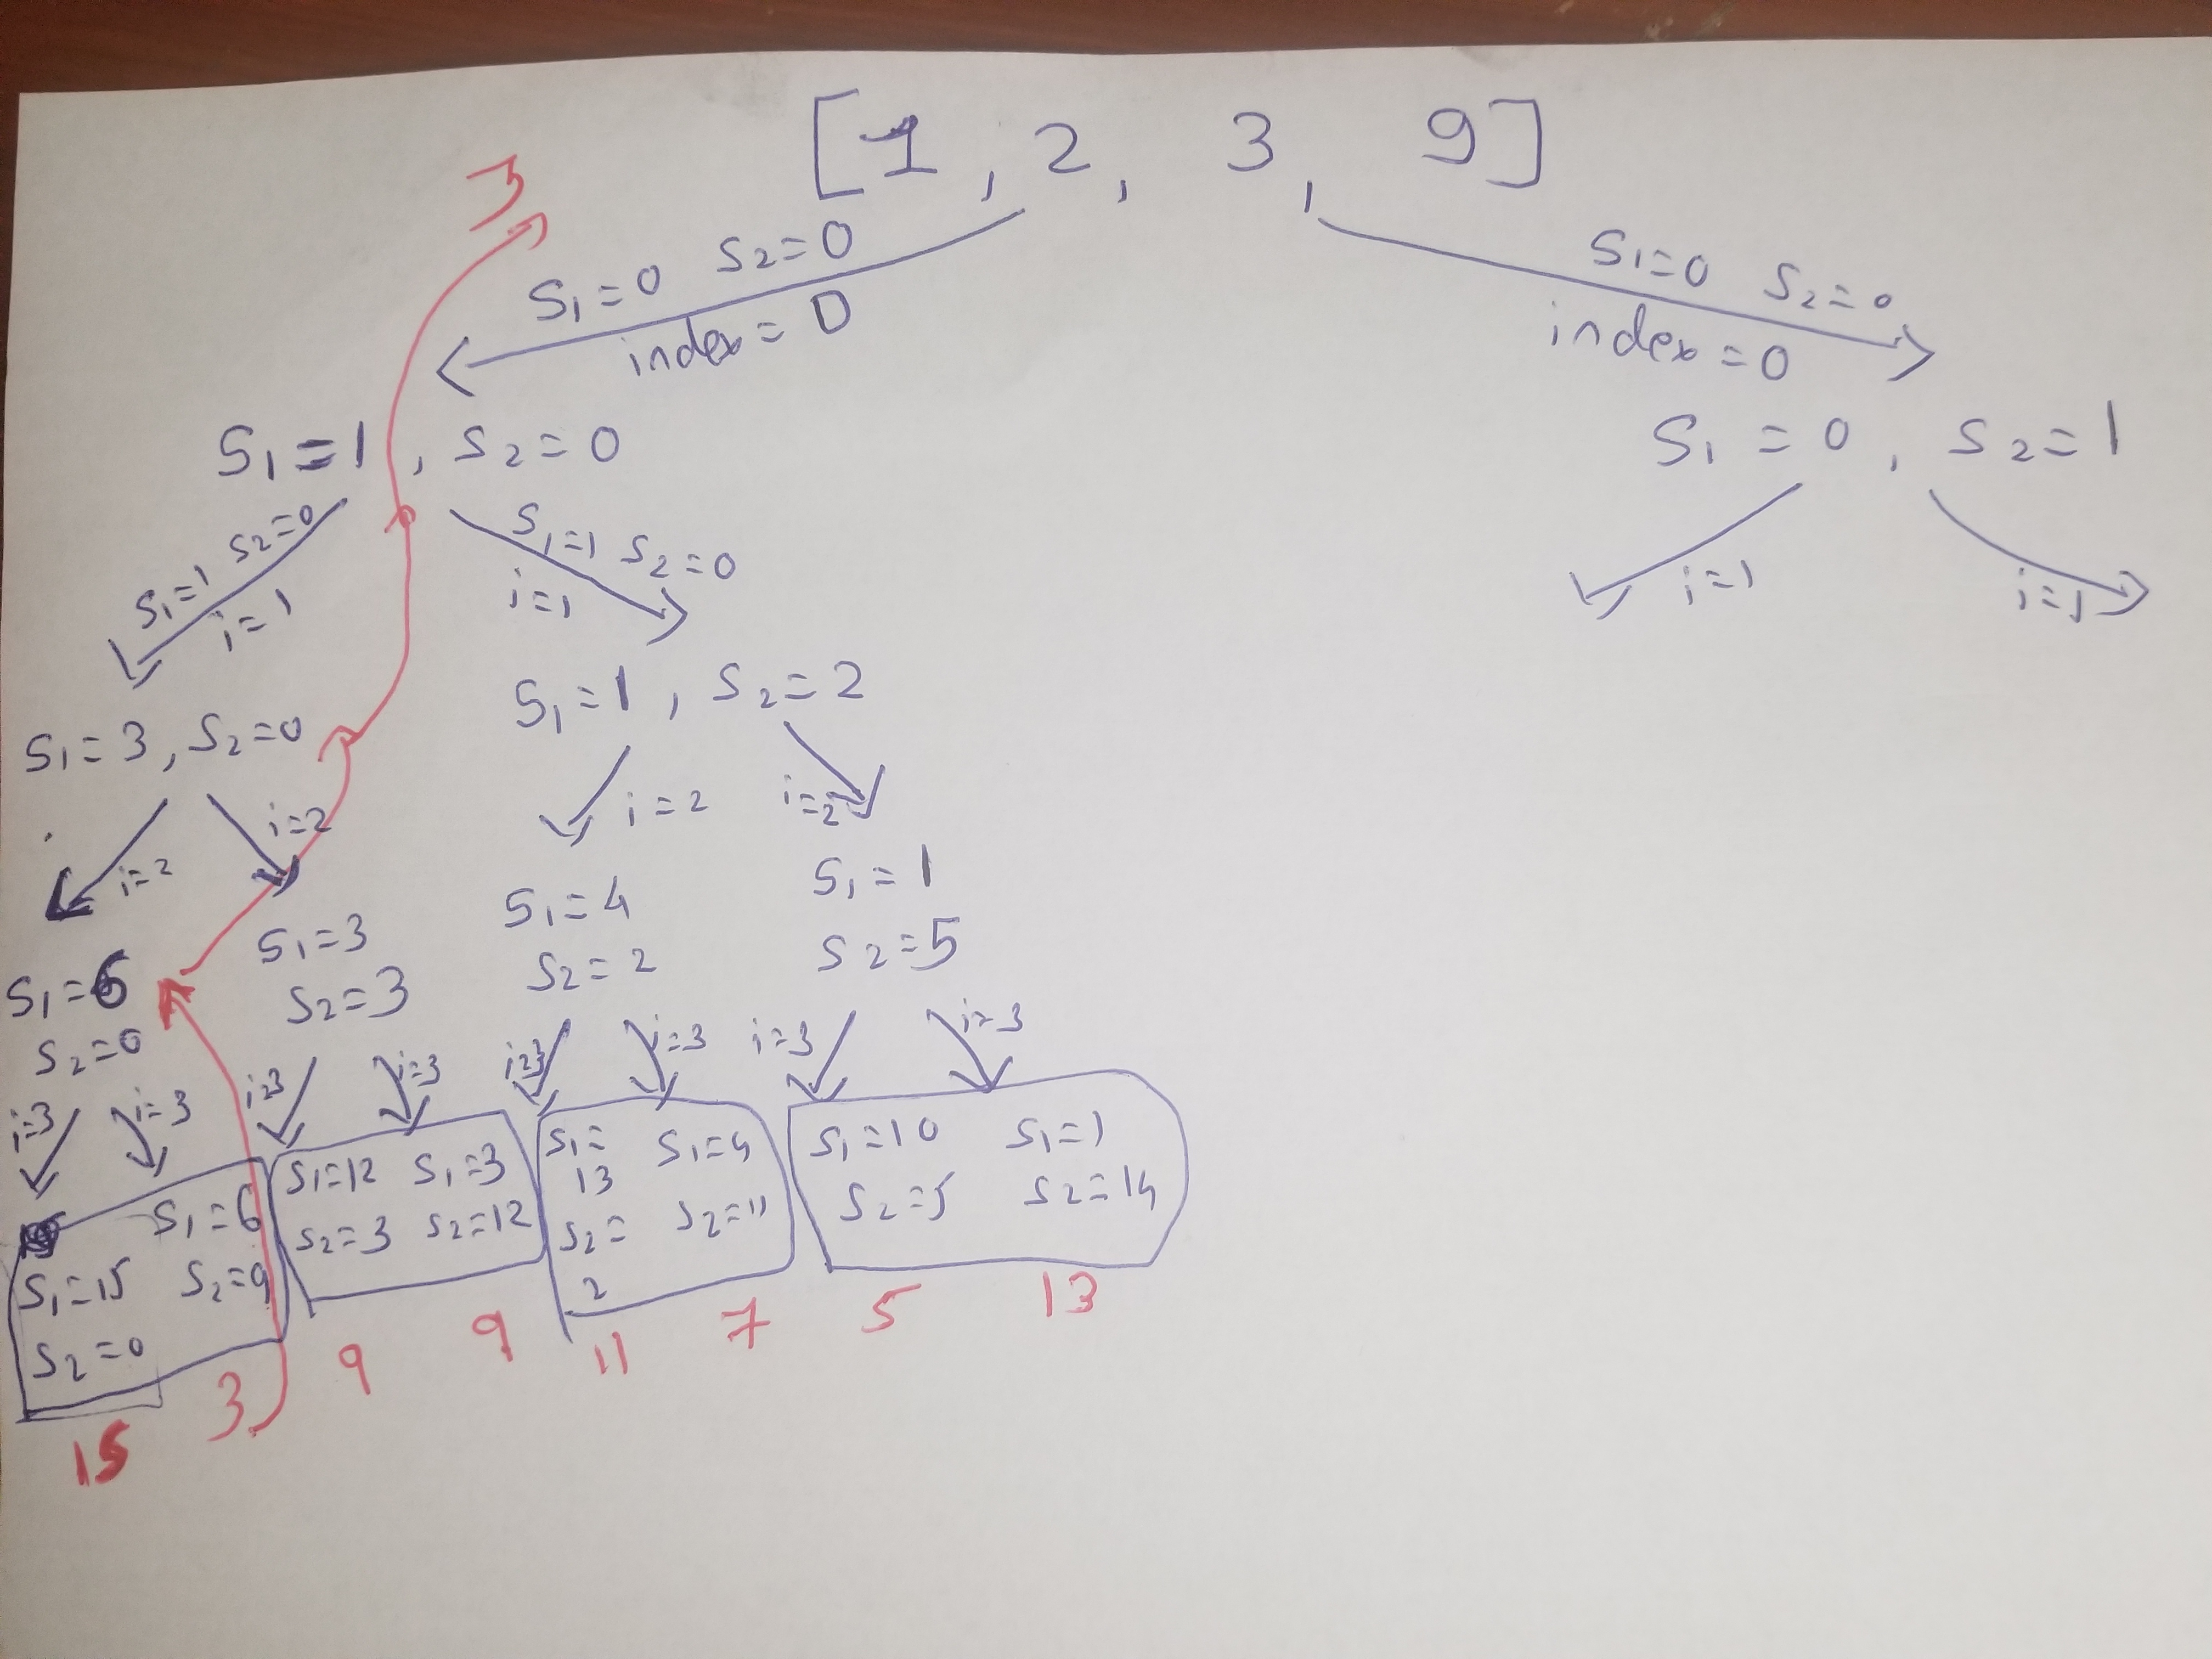 [1, 2, 3, 9]
3
S1=0 S2=0
index=0
S1=0 S2=0
index=0
S1=1, S2=0
S1=0, S2=1
S1=1 S2=0
i=1
S1=1 S2=0
i=1
i=1
i=1
S1=3, S2=0
S1=1, S2=2
i=2
i=2
i=2
i=2
S1=6
S2=0
S1=3
S2=3
S1=4
S2=2
S1=1
S2=5
i=3
i=3
i=3
i=3
i=3
i=3
i=3
i=3
S1=15
S2=0
S1=6
S2=9
S1=12
S2=3
S1=3
S2=12
S1=
13
S2=
2
S1=4
S2=11
S1=10
S2=5
S1=1
S2=14
15
3
9
9
11
7
5
13